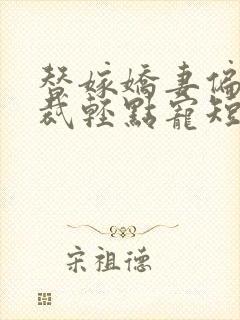 替嫁嬌妻偏
裁輕點寵短
宋祖德